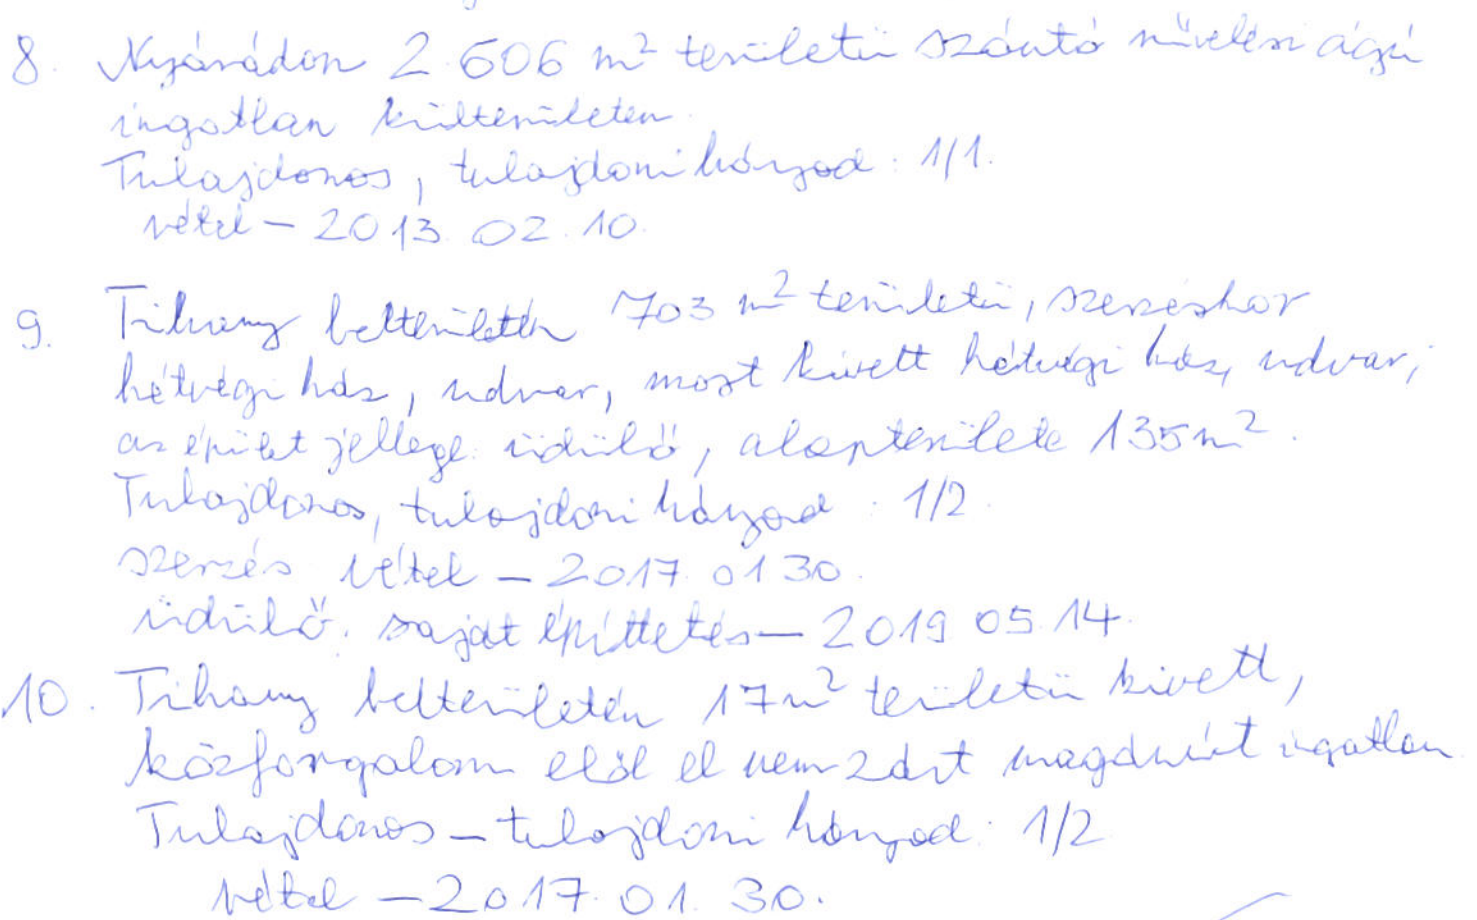 8. Nyárádon 2.606 m² területű szántó művelési ágú
ingatlan külterületen.
Tulajdonos, tulajdoni hányad: 1/1.
vétel – 2013.02.10.
9. Tihany belterületén 703 m² területű, szerzéskor
hétvégi ház, udvar, most kivett hétvégi ház, udvar,
az épület jellege: üdülő, alapterülete 135 m².
Tulajdonos, tulajdoni hányad: 1/2.
szerzés: vétel – 2017.01.30.
üdülő: saját építtetés – 2019.05.14.
10. Tihany belterületén 17 m² területű kivett,
közforgalom elől el nem zárt magánút ingatlan
Tulajdonos – tulajdoni hányad: 1/2
vétel – 2017.01.30.